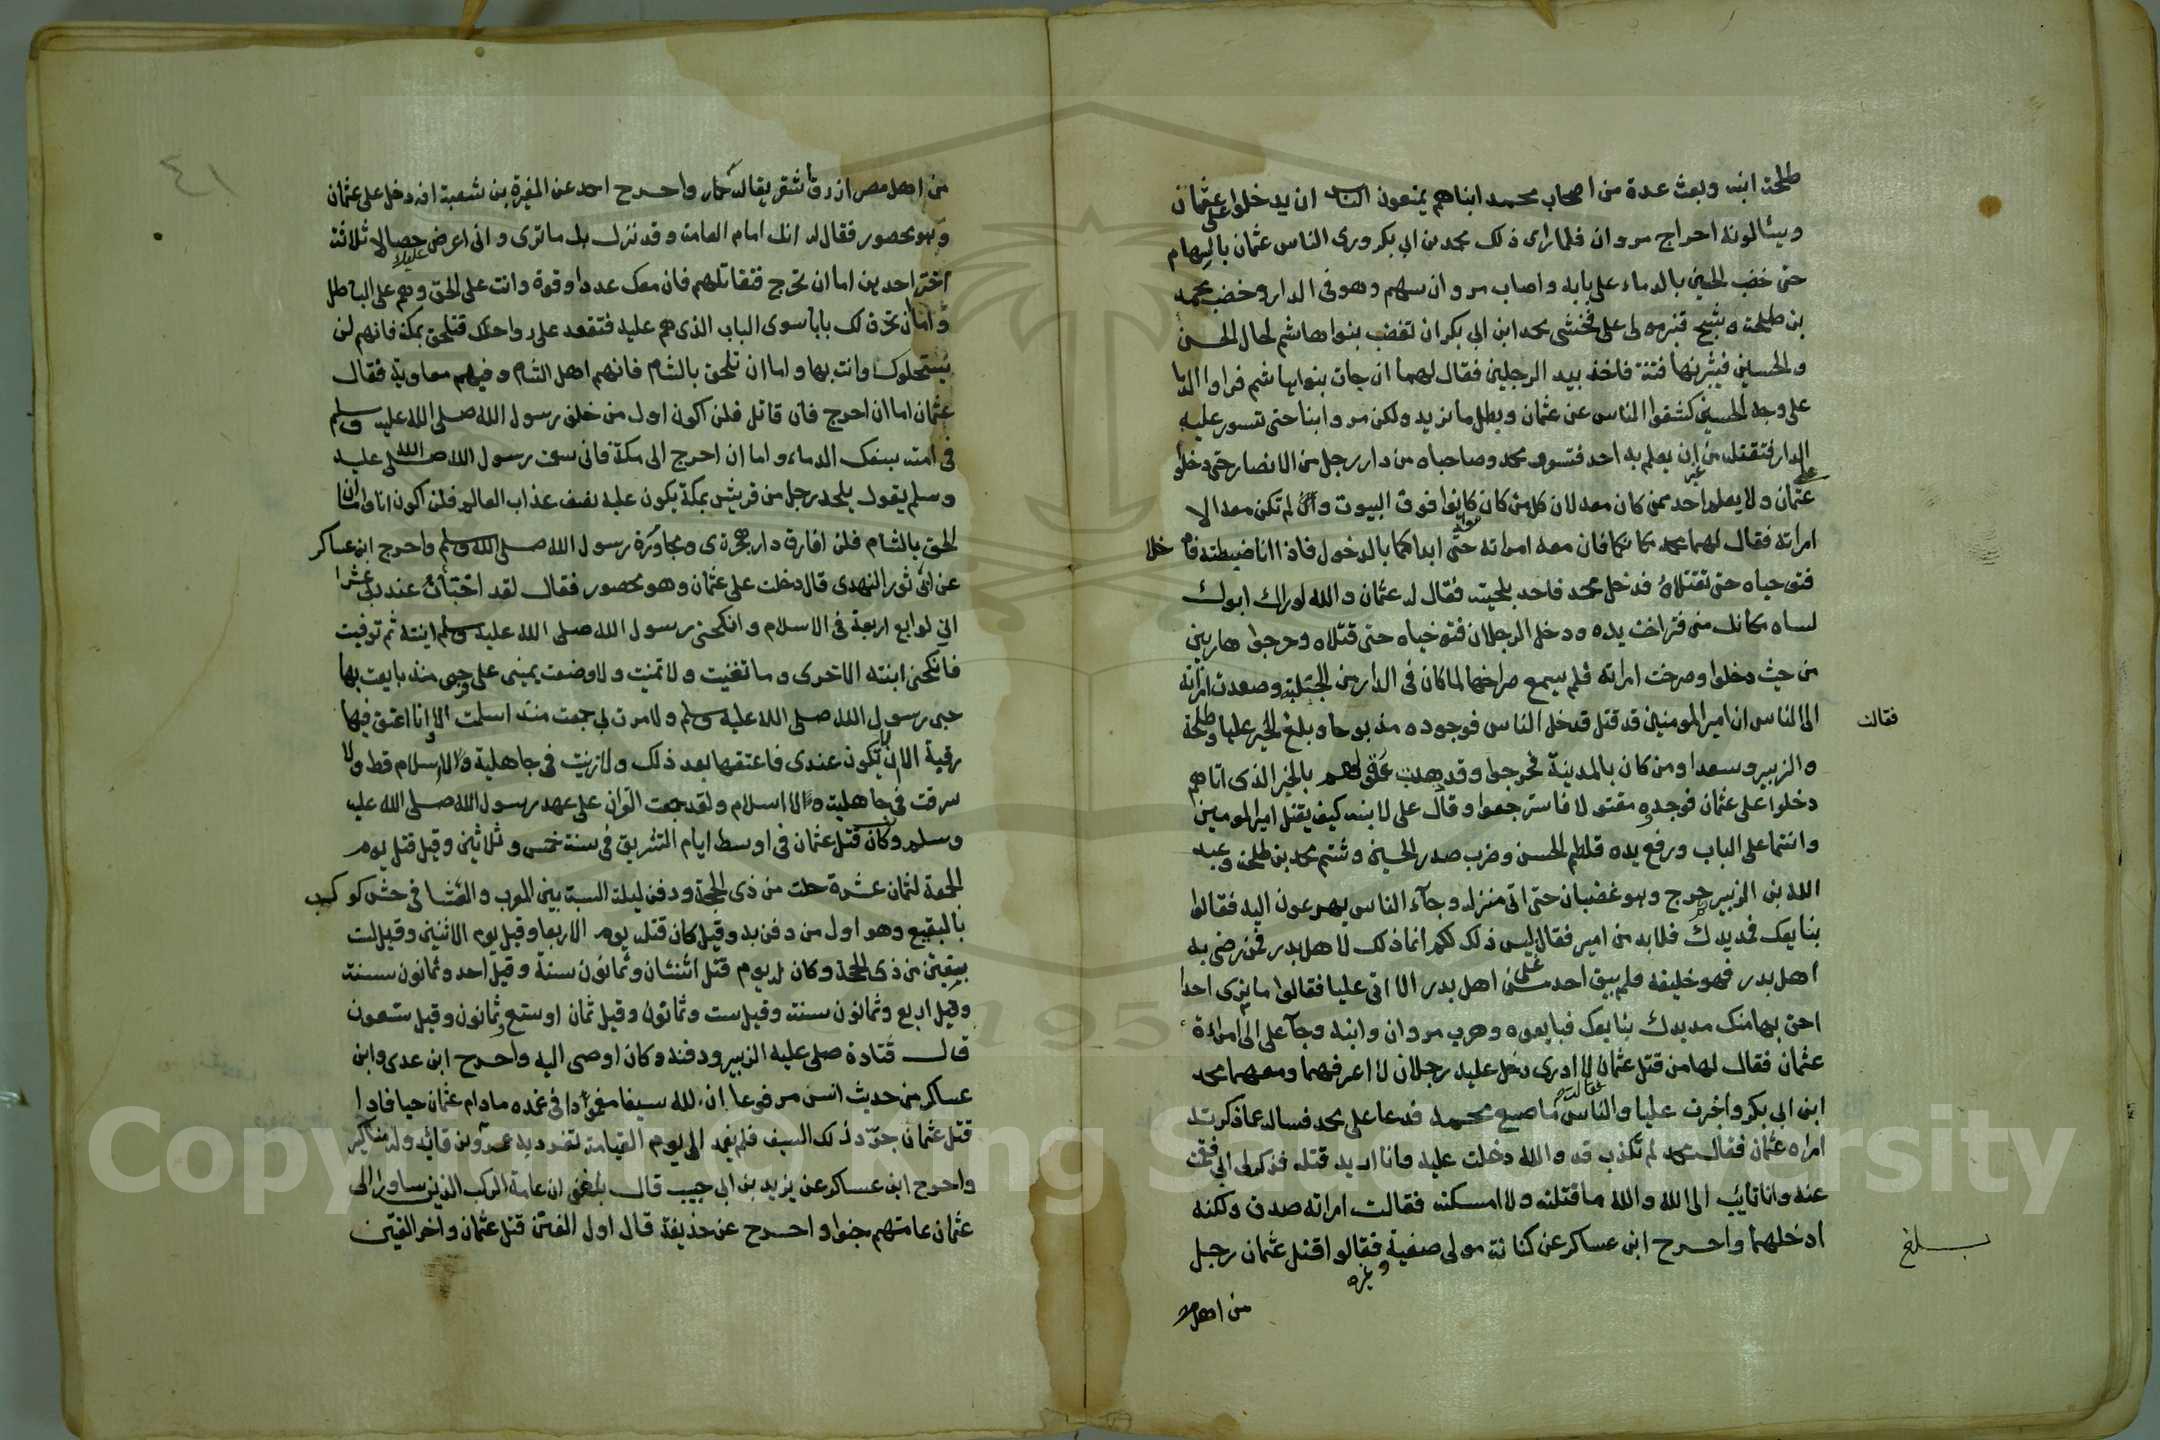 طلحة ابنه وبعث عدة من اصحاب محمد ابناهم يمنعون الناس ان يدخلوا على عثمان
ويسالونه اخراج مروان فلما راى ذلك محمد بن ابي بكر ورى الناس عثمان بالسهام
حتى خضب الحسن بالدماء على بابه واصاب مروان سهم وهو في الدار وخضب محمد
بن طلحة وشج قنبر مولى على فخشى محمد ابن ابي بكر ان تغضب بنوا هاشم لحال الحسن
والحسين فيثيرنها فتنة فاخذ بيد الرجلين فقال لهما ان جات بنوا هاشم فراوا الدما
على وجه الحسين كشفوا الناس عن عثمان وبطل ما نريد ولكن مروا بنا حتى نتسور عليه
الدار فنقتله من غير ان يعلم به احد فتسور محمد وصاحباه من دار رجل من الانصار حتى دخلوا
على عثمان ولا يعلم احد ممن كان معه لان كل من كان كانوا فوق البيوت ولم تكن معه الا
امراته فقال لهما محمد مكانكما فان معه امراته حتى ابداكما بالدخول فاذا انا ضبطته فادخلا
فتوجياه حتى تقتلاه فدخل محمد فاخذ بلحيته فقال له عثمان والله لو راك ابوك
لساه مكانك مني فتراخت يده ودخل الرجلان فتوجياه حتى قتلاه وخرجوا هاربين
من حيث دخلوا وصرخت امراته فلم يسمع صراخها لما كان في الدار من الجلبة وصعدت امراته
فقالت
الى الناس ان امير المومنين قد قتل فدخل الناس فوجوده مذبوحا وبلغ الخبر عليا وطلحة
والزبير وسعدا ومن كان بالمدينة فخرجوا وقد ذهبت عقولهم بالخبر الذى اتاهم
دخلوا على عثمان فوجدوه مقتولا فاسترجعوا وقال على لابنيه كيف يقتل امير المومنين
وانتما على الباب ورفع يده فلطم الحسن وضرب صدر الحسين وشتم محمد بن طلحة وعبد
الله بن الزبير وخرج وهو غضبان حتى اتى منزله وجاء الناس يهرعون اليه فقالوا
نبايعك فمد يدك فلا بد من امير فقال ليس ذلك لكم انما ذلك لاهل بدر فمن رضى به
اهل بدر فهو خليفة فلم يبق احد من اهل بدر الا اتى عليا فقالوا ما نرى احدا
احق بها منك مد يدك نبايعك فبايعوه وهرب مروان وابنه وجاء على الى امراءة
عثمان فقال لها من قتل عثمان قالت لا ادرى دخل عليه رجلان لا اعرفهما ومعهما محمد
ابن ابي بكر واخبرت عليا والناس ما صنع محمد فدعا على محمد فساله عما ذكرت
امراه عثمان فقال محمد لم تكذب قد والله دخلت عليه وانا اريد قتله فذكر لى ابي فقمت
عنه وانا تايب الى الله والله ما قتلته ولا امسكته فقالت امراته صدق ولكنه
ادخلهما واخرج ابن عساكر عن كنانة مولى صفية وغيره فقالوا قتل عثمان رجل
بلغ
من اهل
٤١
من اهل مصر ازرق اشقر يقال له حمار واخرج احمد عن المغيرة بن شعبة انه دخل على عثمان
وهو محصور فقال له انك امام العامة وقد نزل بك ما ترى وانى اعرض عليك خصالا ثلاثة
اختر احديهن اما ان تخرج فتقاتلهم فان معك عددا وقوة وانت على الحق وهم على الباطل
واما ان تخرق لك بابا سوى الباب الذى هم عليه فتقعد على رواحلك فتلحق بمكة فانهم لن
يستحلوك وانت بها واما ان تلحق بالشام فانهم اهل الشام وفيهم معاوية فقال
عثمان اما ان اخرج فان قاتل فلن اكون اول من خلف رسول الله صلى الله عليه وسلم
في امته بسفك الدماء واما ان اخرج الى مكة فانى سمعت رسول الله صلى الله عليه
وسلم يقول يلحد رجل من قريش بمكة يكون عليه نصف عذاب العالم فلن اكون انا واما ان
الحق بالشام فلن افارق دار هجرتى ومجاورة رسول الله صلى الله عليه وسلم واخرج ابن عساكر
عن ابي ثور النهدى قال دخلت على عثمان وهو محصور فقال لقد اختبات عند ربي عشرا
اني لرابع اربعة في الاسلام وانكحنى رسول الله صلى الله عليه وسلم ابنته ثم توفيت
فانكحنى ابنته الاخرى وما تغنيت ولا تمنيت ولا وضعت يمينى على فرجى منذ بايعت بها
حبي رسول الله صلى الله عليه وسلم ولا مرت بي جمعة منذ اسلمت الا وانا اعتق فيها
رقبة الا ان لا تكون عندى فاعتقها بعد ذلك ولا زنيت في جاهلية ولا اسلام قط ولا
سرقت في جاهلية ولا اسلام ولقد جمعت القران على عهد رسول الله صلى الله عليه
وسلم وكان قتل عثمان في اوسط ايام التشريق في سنة خمس وثلاثين وقيل قتل يوم
الجمعة لثمان عشرة خلت من ذى الحجة ودفن ليلة السبت بين المغرب والعشا في حش كوكب
بالبقيع وهو اول من دفن به وقيل كان قتله يوم الاربعا وقيل يوم الاثنين وقيل لست
بقين من ذى الحجة وكان له يوم قتل اثنتان وثمانون سنة وقيل احد وثمانون سنة
وقيل اربع وثمانون سنة وقيل ست وثمانون وقيل ثمان او تسع وثمانون وقيل تسعون
قال قتادة صلى عليه الزبير ودفنه وكان اوصى اليه واخرج ابن عدى وابن
عساكر من حديث انس مرفوعا ان لله سيفا مغمودا في غمده ما دام عثمان حيا فاذا
قتل عثمان جرد ذلك السيف فلم يغمد الى يوم القيامة تفرد به عمرو بن فايد وله مناكير
واخرج ابن عساكر عن يزيد بن ابي حبيب قال بلغنى ان عامة الركب الذين ساروا الى
عثمان عامتهم جنوا واخرج عن حذيفة قال اول الفتن قتل عثمان واخر الفتن
Copyright © King Saud University
1957